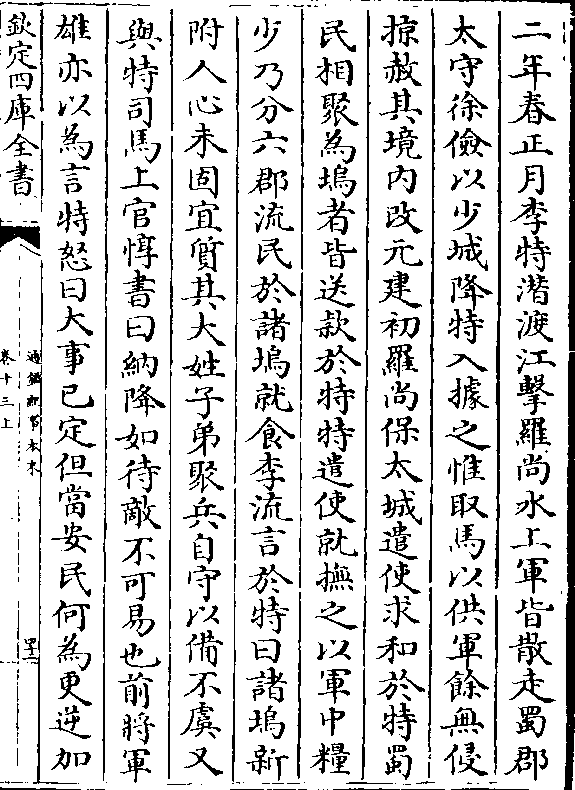 二年春正月李特潛渡江擊羅尚水上軍皆散走蜀郡
太守徐儉以少城降特入據之惟取馬以供軍餘無侵
掠赦其境內改元建初羅尚保太城遣使求和於特蜀
民相聚為塢者皆送款於特特遣使就撫之以軍中糧
少乃分六郡流民於諸塢就食李流言於特曰諸塢新
附人心未固宜質其大姓子弟聚兵自守以備不虞又
與特司馬上官惇書曰納降如待敵不可易也前將軍
雄亦以為言特怒曰大事已定但當安民何為更逆加
欽定四庫全書
通鑑紀事本末
卷十三上